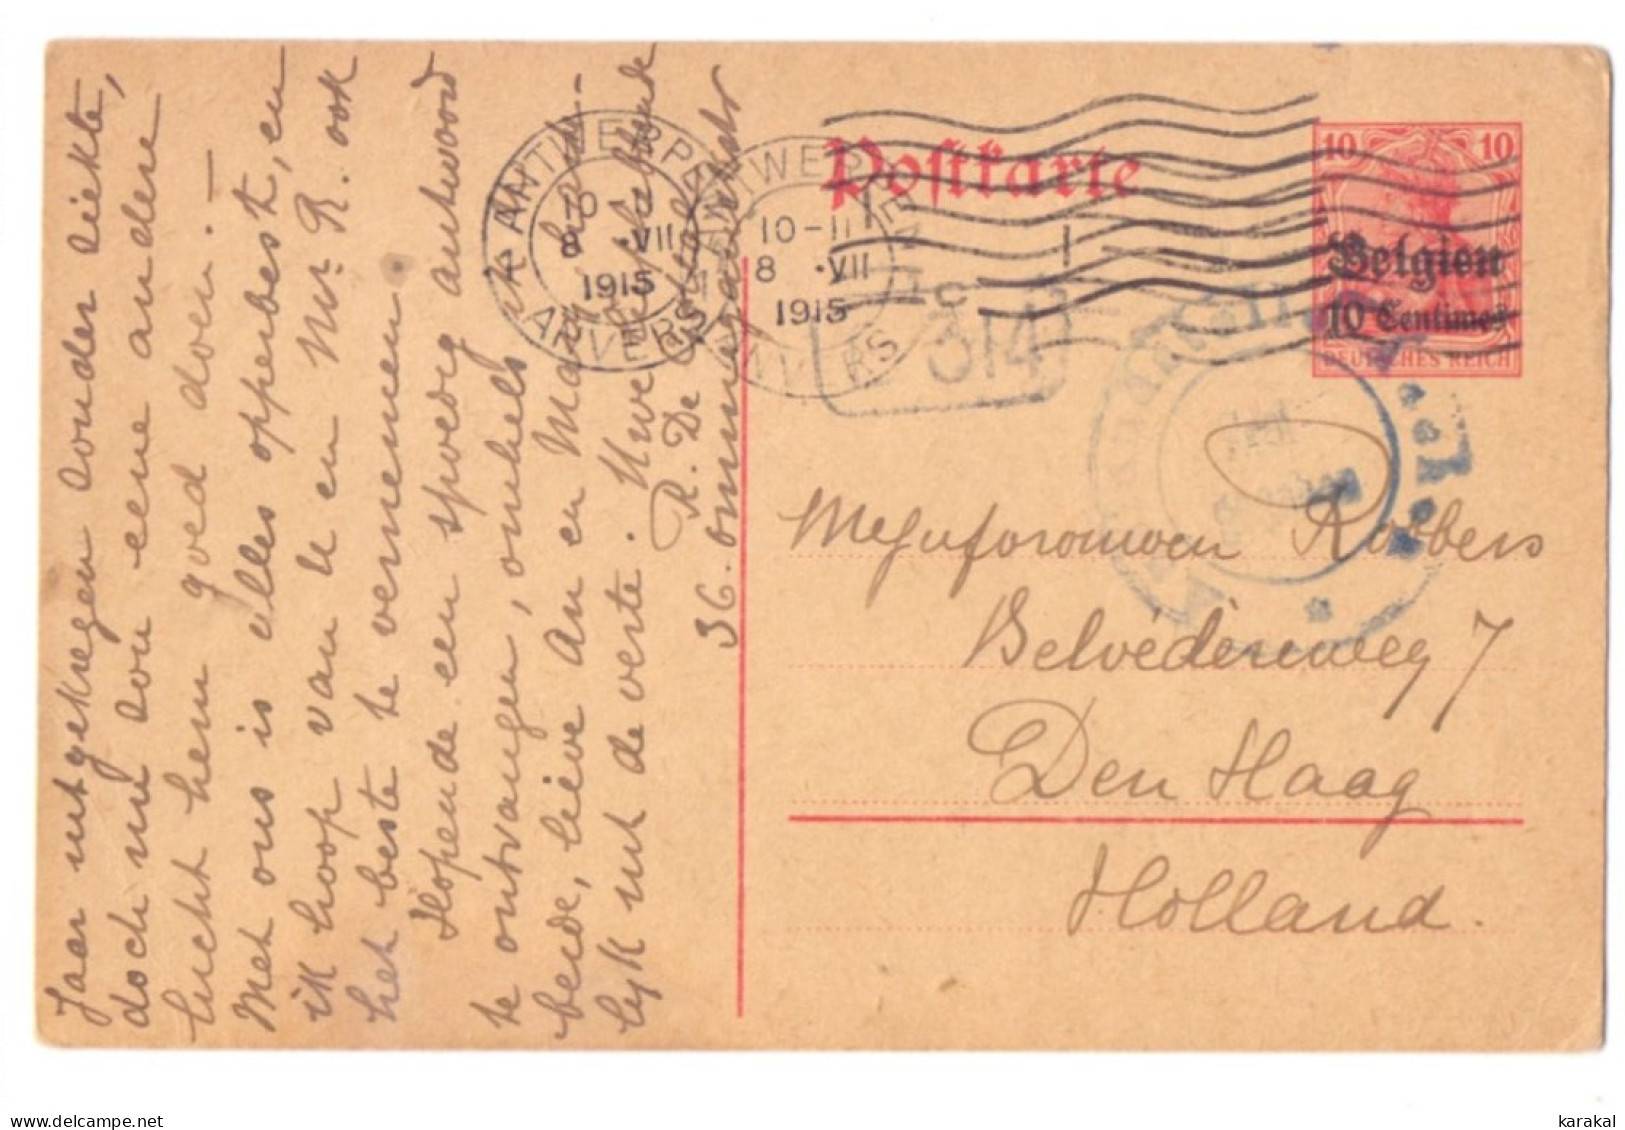 Jaar uitgekregen zonder ziekte,
doch nu zou eene andere
lucht hem goed doen. —
Met ons is alles opperbest, en
ik hoop van U en Mr R. ook
het beste te vernemen.
Hopende een spoedig antwoord
te ontvangen, omhels
beide, lieve An en
lijk uit de verte. Uwe
R. De
36.
ANTWERPEN
10
8 VII
1915
ANVERS
ANTWERPEN
10-11
8 VII
1915
ANVERS
Postkarte
10 10
Belgien
10 Centimes
DEUTSCHES REICH
314
Mejuforouwen Robbers
Belvédèreweg 7
Den Haag
Holland.
karakal